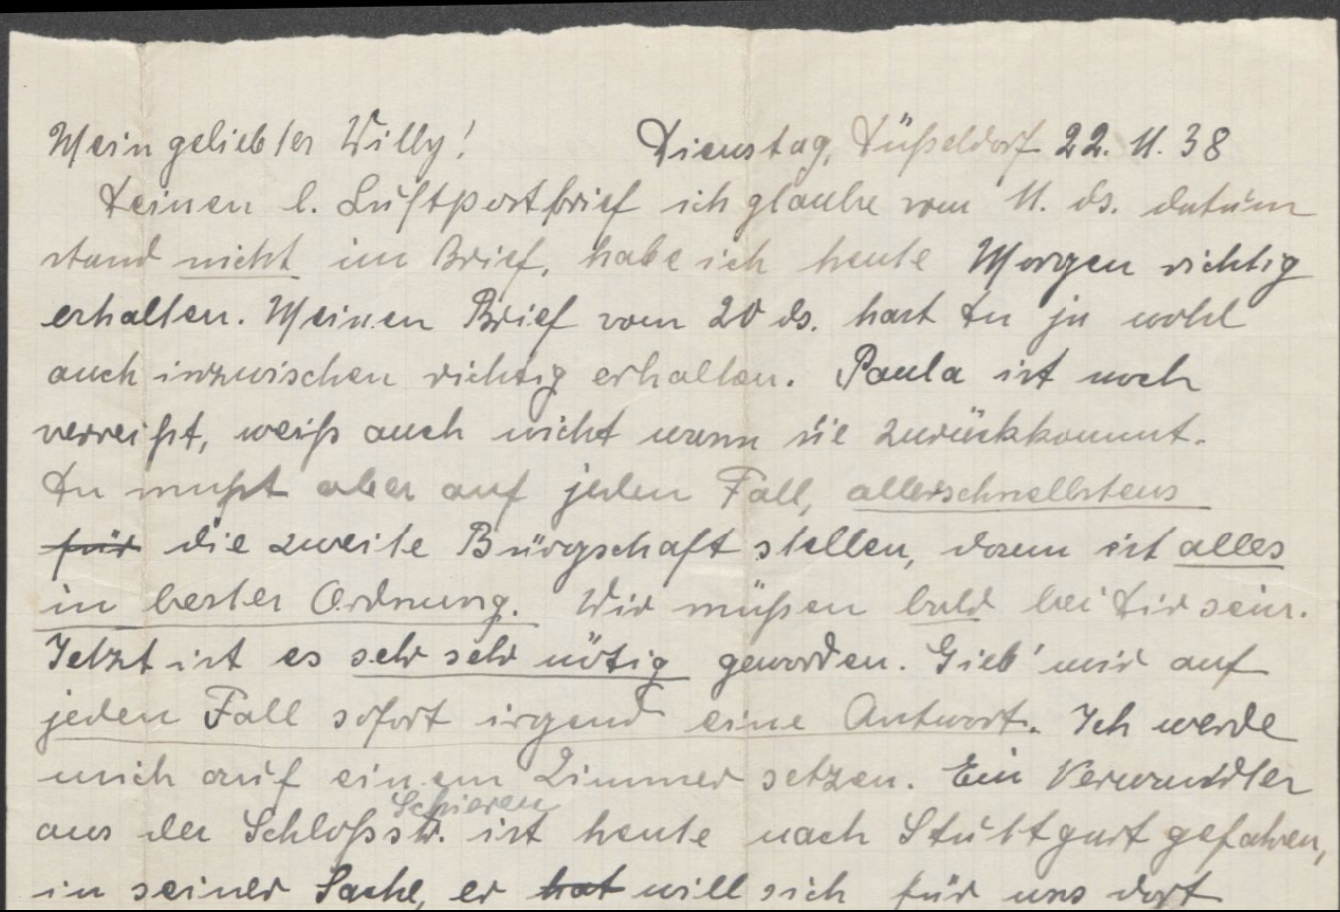 Mein geliebter Willy! Dienstag, Düßeldorf 22. 11. 38
Deinen l. Luftpostbrief ich glaube vom 11. ds. datum
stand nicht im Brief, habe ich heute Morgen richtig
erhalten. Meinen Brief vom 20 ds. hast Du ja wohl
auch inzwischen richtig erhalten. Paula ist noch
verreißt, weiß auch nicht wann sie zurückkommt.
Du mußt aber auf jeden Fall, allerschnellstens
für die zweite Bürgschaft stellen, dann ist alles
in bester Ordnung. Wir müßen bald bei Dir sein.
Jetzt ist es sehr sehr nötig geworden. Gieb' mir auf
jeden Fall sofort irgend eine Antwort. Ich werde
mich auf einem Zimmer setzen. Ein Verwandter
Schieren
aus der Schloßstr. ist heute nach Stuttgart gefahren,
in seiner Sache, er hat will sich für uns dort